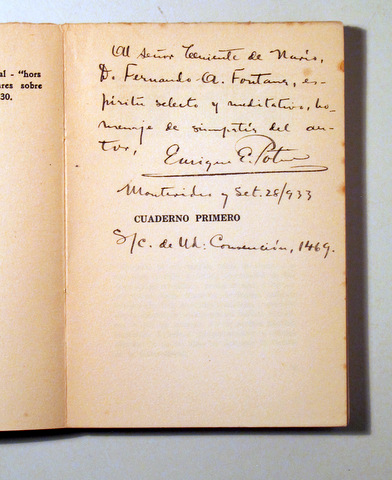 al - "hors
ares sobre
30.
Al señor Teniente de Navío,
D. Fernando A. Fontana, es-
píritu selecto y meditativo, ho-
menaje de simpatía del au-
tor,
Enrique E. Potrie
Montevideo y Set. 28/933
CUADERNO PRIMERO
S/c. de Ud: Convención, 1469.